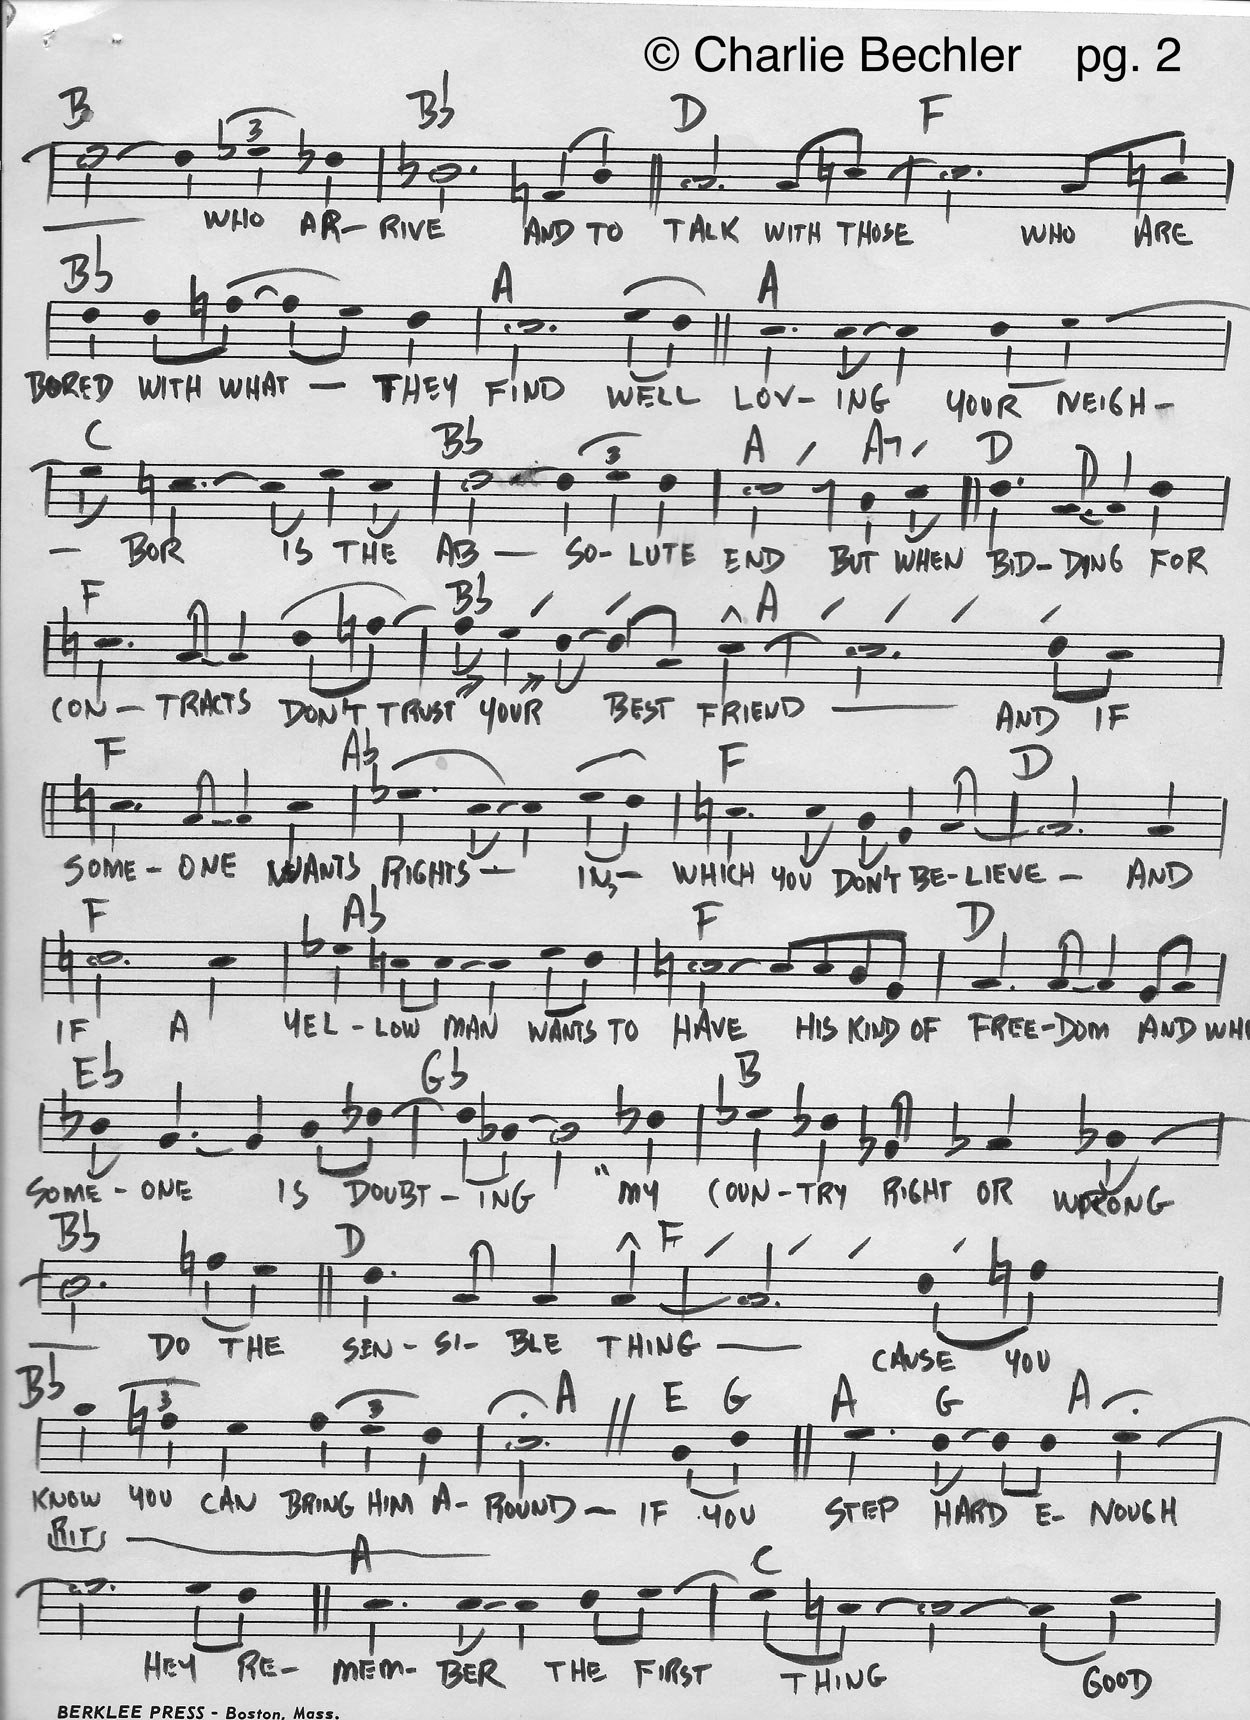 © Charlie Bechler pg. 2
B Bb D F
3
WHO AR- RIVE AND TO TALK WITH THOSE WHO ARE
Bb A A
BORED WITH WHAT - THEY FIND WELL LOV- ING YOUR NEIGH-
C Bb A A7 D
3
- BOR IS THE AB- SO- LUTE END BUT WHEN BID- DING FOR
F Bb A
CON- TRACTS DON'T TRUST YOUR BEST FRIEND AND IF
F Ab F D
SOME- ONE WANTS RIGHTS- IN, - WHICH YOU DON'T BE-LIEVE - AND
F Ab F D
IF A YEL- LOW MAN WANTS TO HAVE HIS KIND OF FREE-DOM AND WH
Eb Gb B
SOME- ONE IS DOUBT- ING "MY COUN-TRY RIGHT OR WRONG
Bb D F
DO THE SEN- SI- BLE THING CAUSE YOU
Bb A E G A G A
3 3
KNOW YOU CAN BRING HIM A- ROUND- IF YOU STEP HARD E- NOUGH
RIT. A C
HEY RE- MEM- BER THE FIRST THING GOOD
BERKLEE PRESS - Boston, Mass.